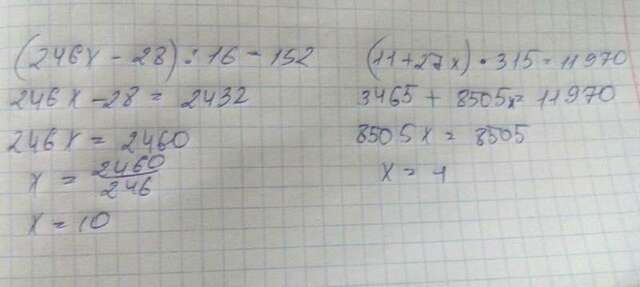 (246x - 28) : 16 = 152
246x - 28 = 2432
246x = 2460
x = 2460/246
x = 10
(11 + 27x) · 315 = 11970
3465 + 8505x = 11970
8505x = 8505
x = 1